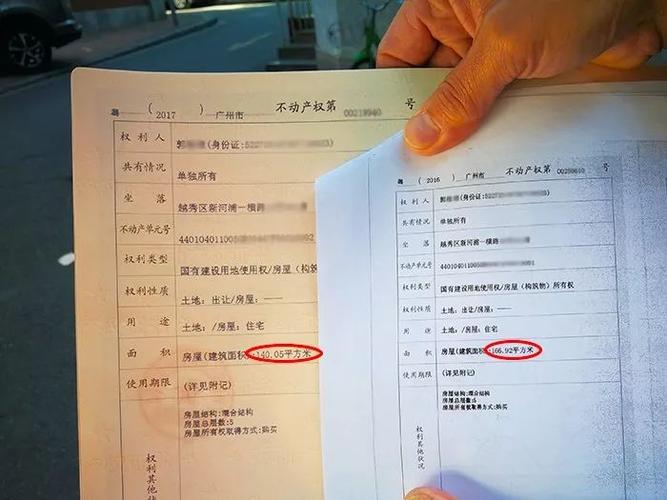 粤 ( 2017 ) 广州市 不动产权第 号
权利人 郭 (身份证:
共有情况 单独所有
坐落 越秀区新河浦一横路
不动产单元号 440104011005
权利类型 国有建设用地使用权/房屋(构筑
权利性质 土地: 出让/房屋: ——
用途 土地: /房屋: 住宅
面积 房屋(建筑面积):140.05平方米
使用期限 (详见附记)
房屋结构:混合结构
房屋总层数:5
房屋所有权取得方式:购买
权利其他
粤 ( 2016 ) 广州市 不动产权第 号
权利人 郭 (身份证:
共有情况 单独所有
坐落 越秀区新河浦一横路
不动产单元号 44010401100
权利类型 国有建设用地使用权/房屋(构筑物)所有权
权利性质 土地: 出让/房屋: ——
用途 土地: /房屋: 住宅
面积 房屋(建筑面积):166.92平方米
使用期限 (详见附记)
房屋结构:混合结构
房屋总层数:5
房屋所有权取得方式:购买
权利其他状况